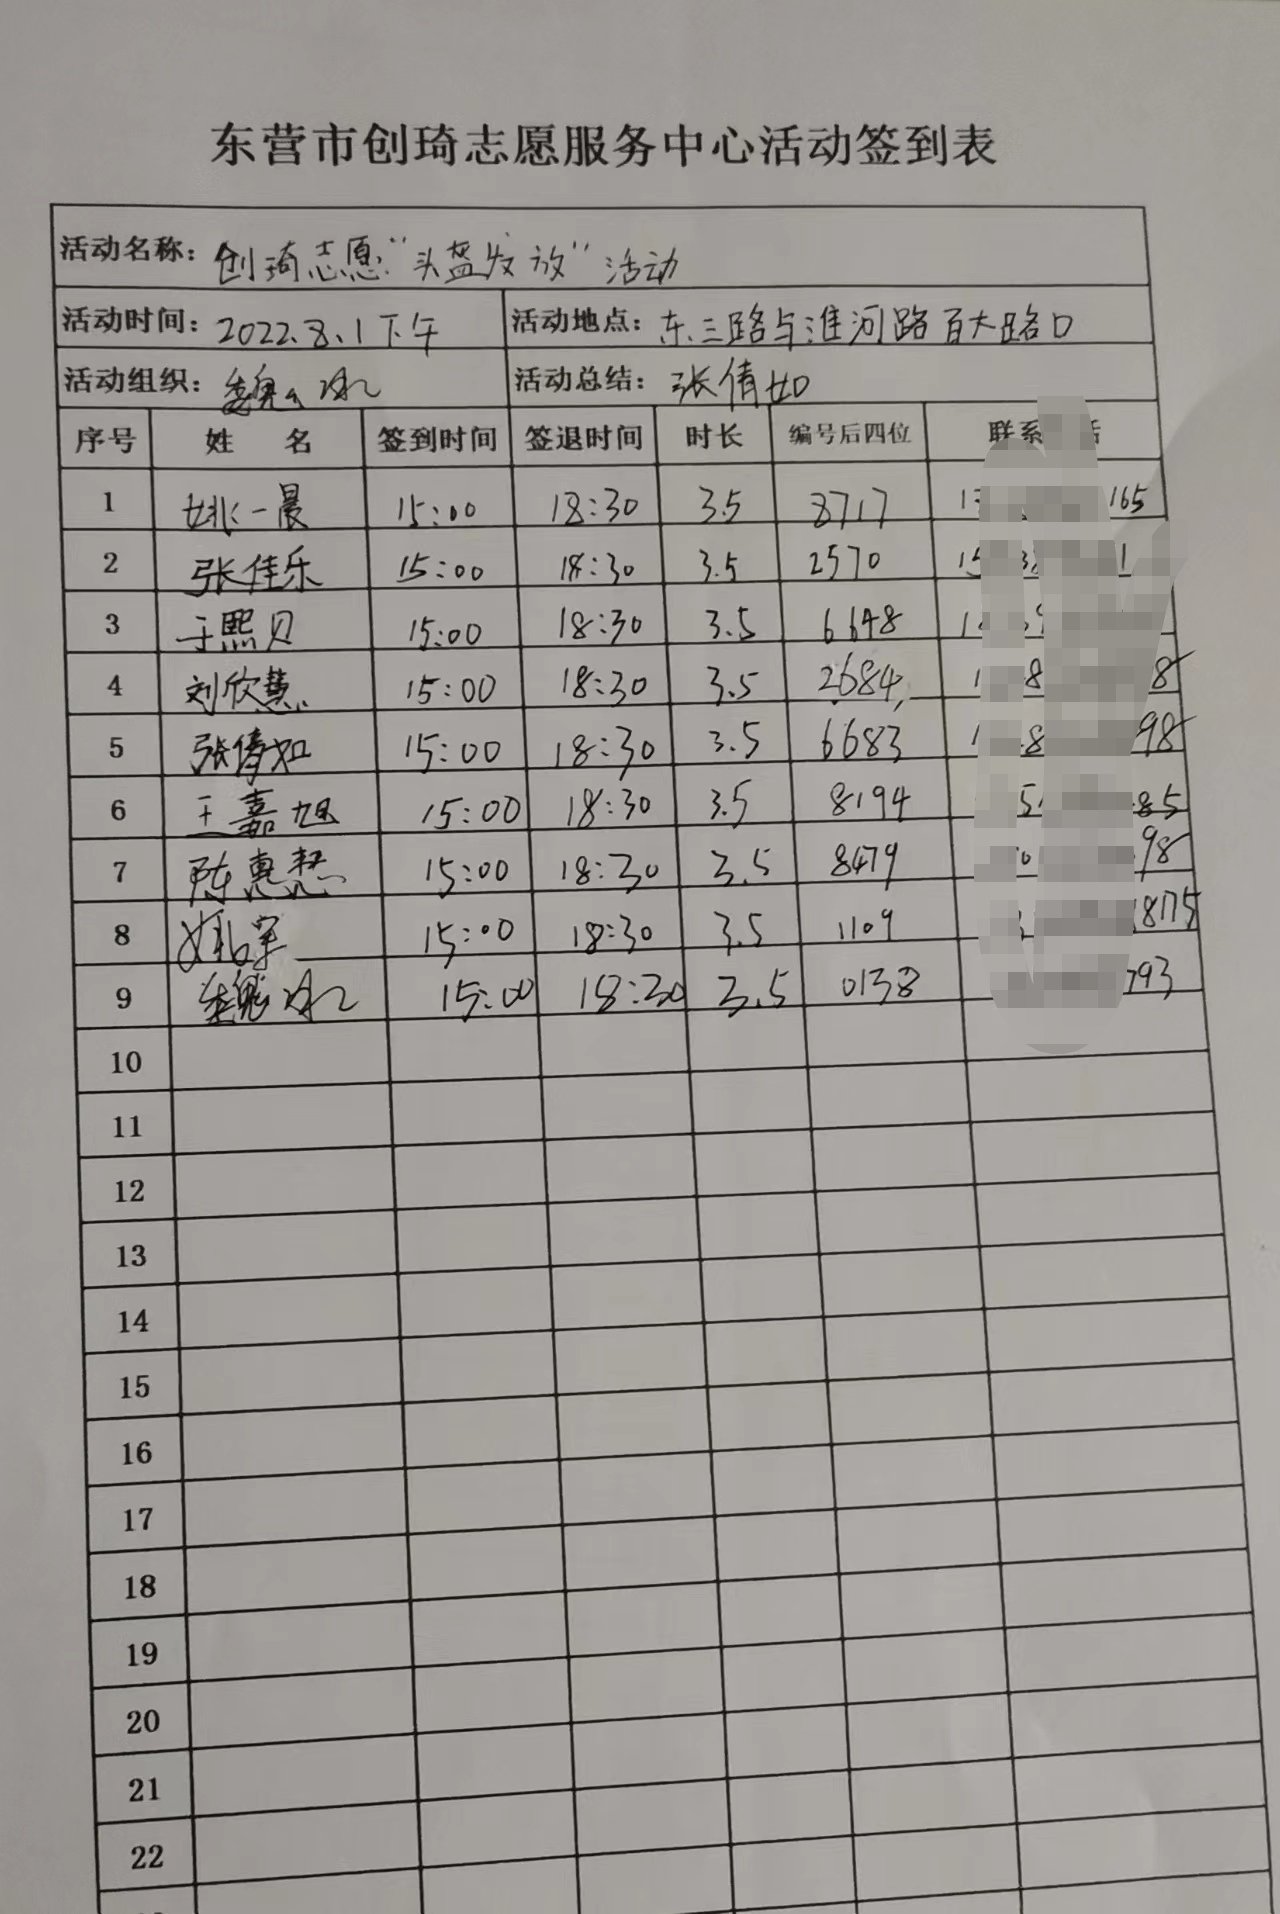 东营市创琦志愿服务中心活动签到表
活动名称：创琦志愿“头盔发放”活动
活动时间：2022.8.1下午 活动地点：东三路与淮河路百大路口
活动组织：魏冰 活动总结：张倩如
序号 姓 名 签到时间 签退时间 时长 编号后四位 联系 话
1 姚一晨 15:00 18:30 3.5 8717 165
2 张佳乐 15:00 18:30 3.5 2570 1
3 于熙贝 15:00 18:30 3.5 6648
4 刘欣慧 15:00 18:30 3.5 2684 8
5 张倩如 15:00 18:30 3.5 6683 98
6 王嘉旭 15:00 18:30 3.5 8194 85
7 陈惠慧 15:00 18:30 3.5 8479 98
8 15:00 18:30 3.5 1109 8175
9 魏冰 15:00 18:30 3.5 0138 793
10
11
12
13
14
15
16
17
18
19
20
21
22